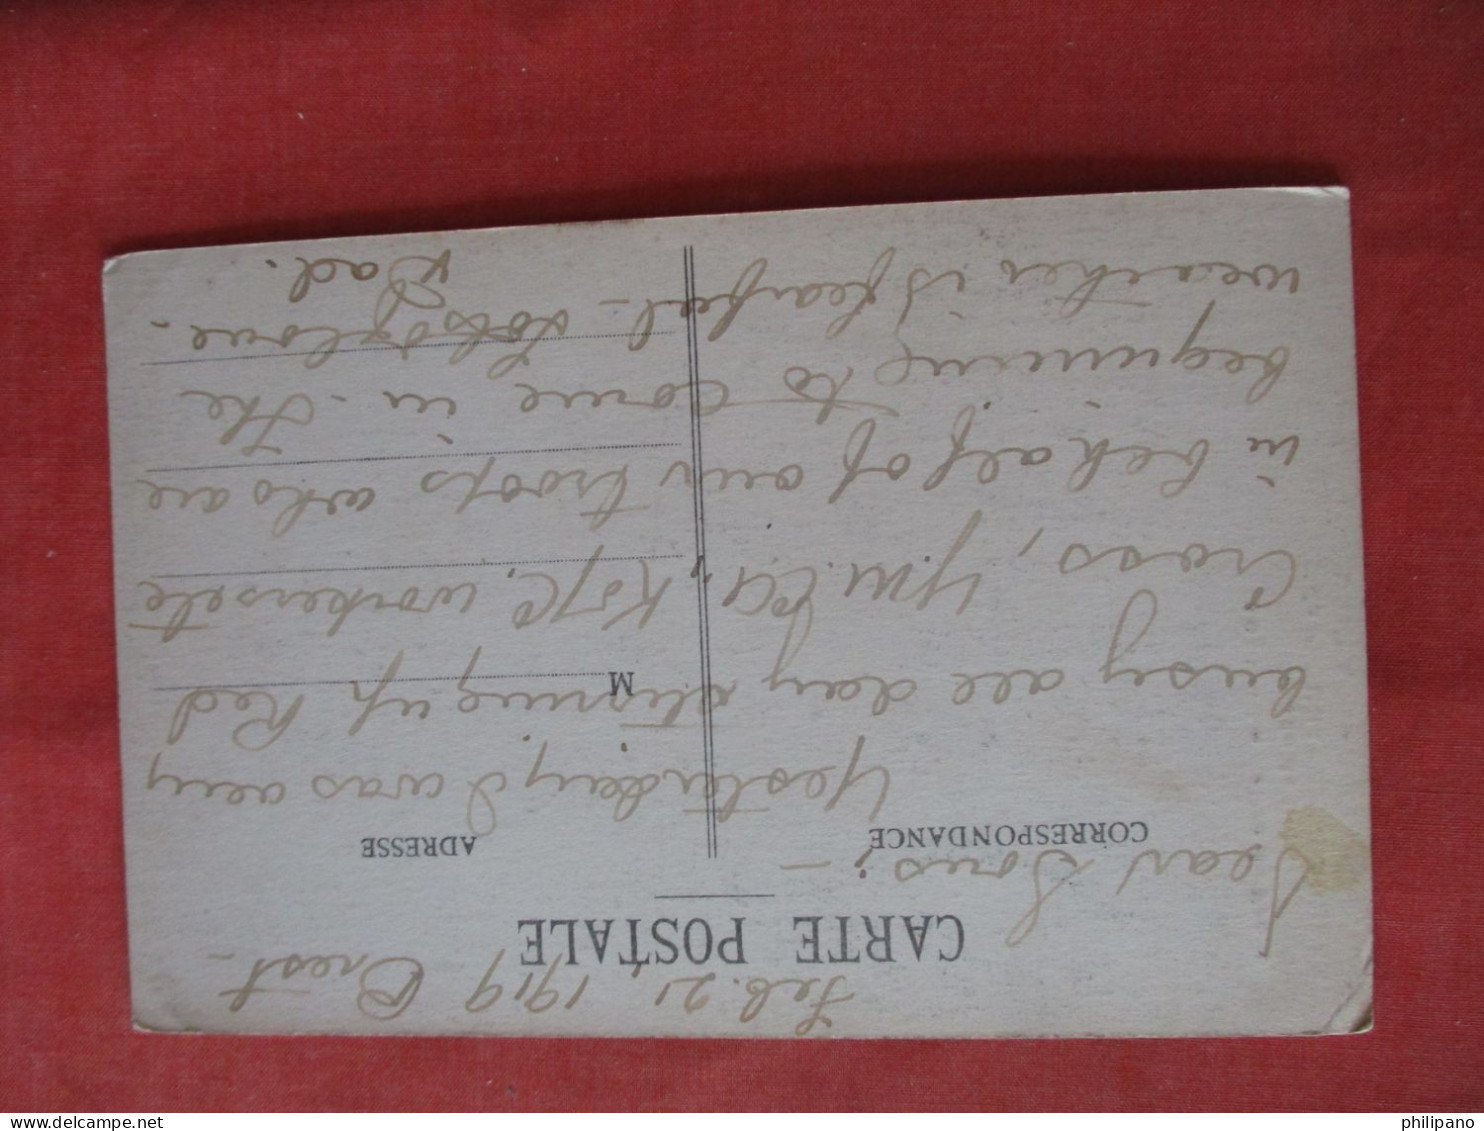 Feb. 21, 1919 Brest -
CARTE POSTALE
Dear Sons; -
CORRESPONDANCE
ADRESSE
Yesterday I was very
busy all day stirring up Red
M
Cross, Y.M.C.A, K of C, workers etc
in behalf of our troops who are
beginning to come in. The
weather is fearful - Lots of love -
Dad.
philipano